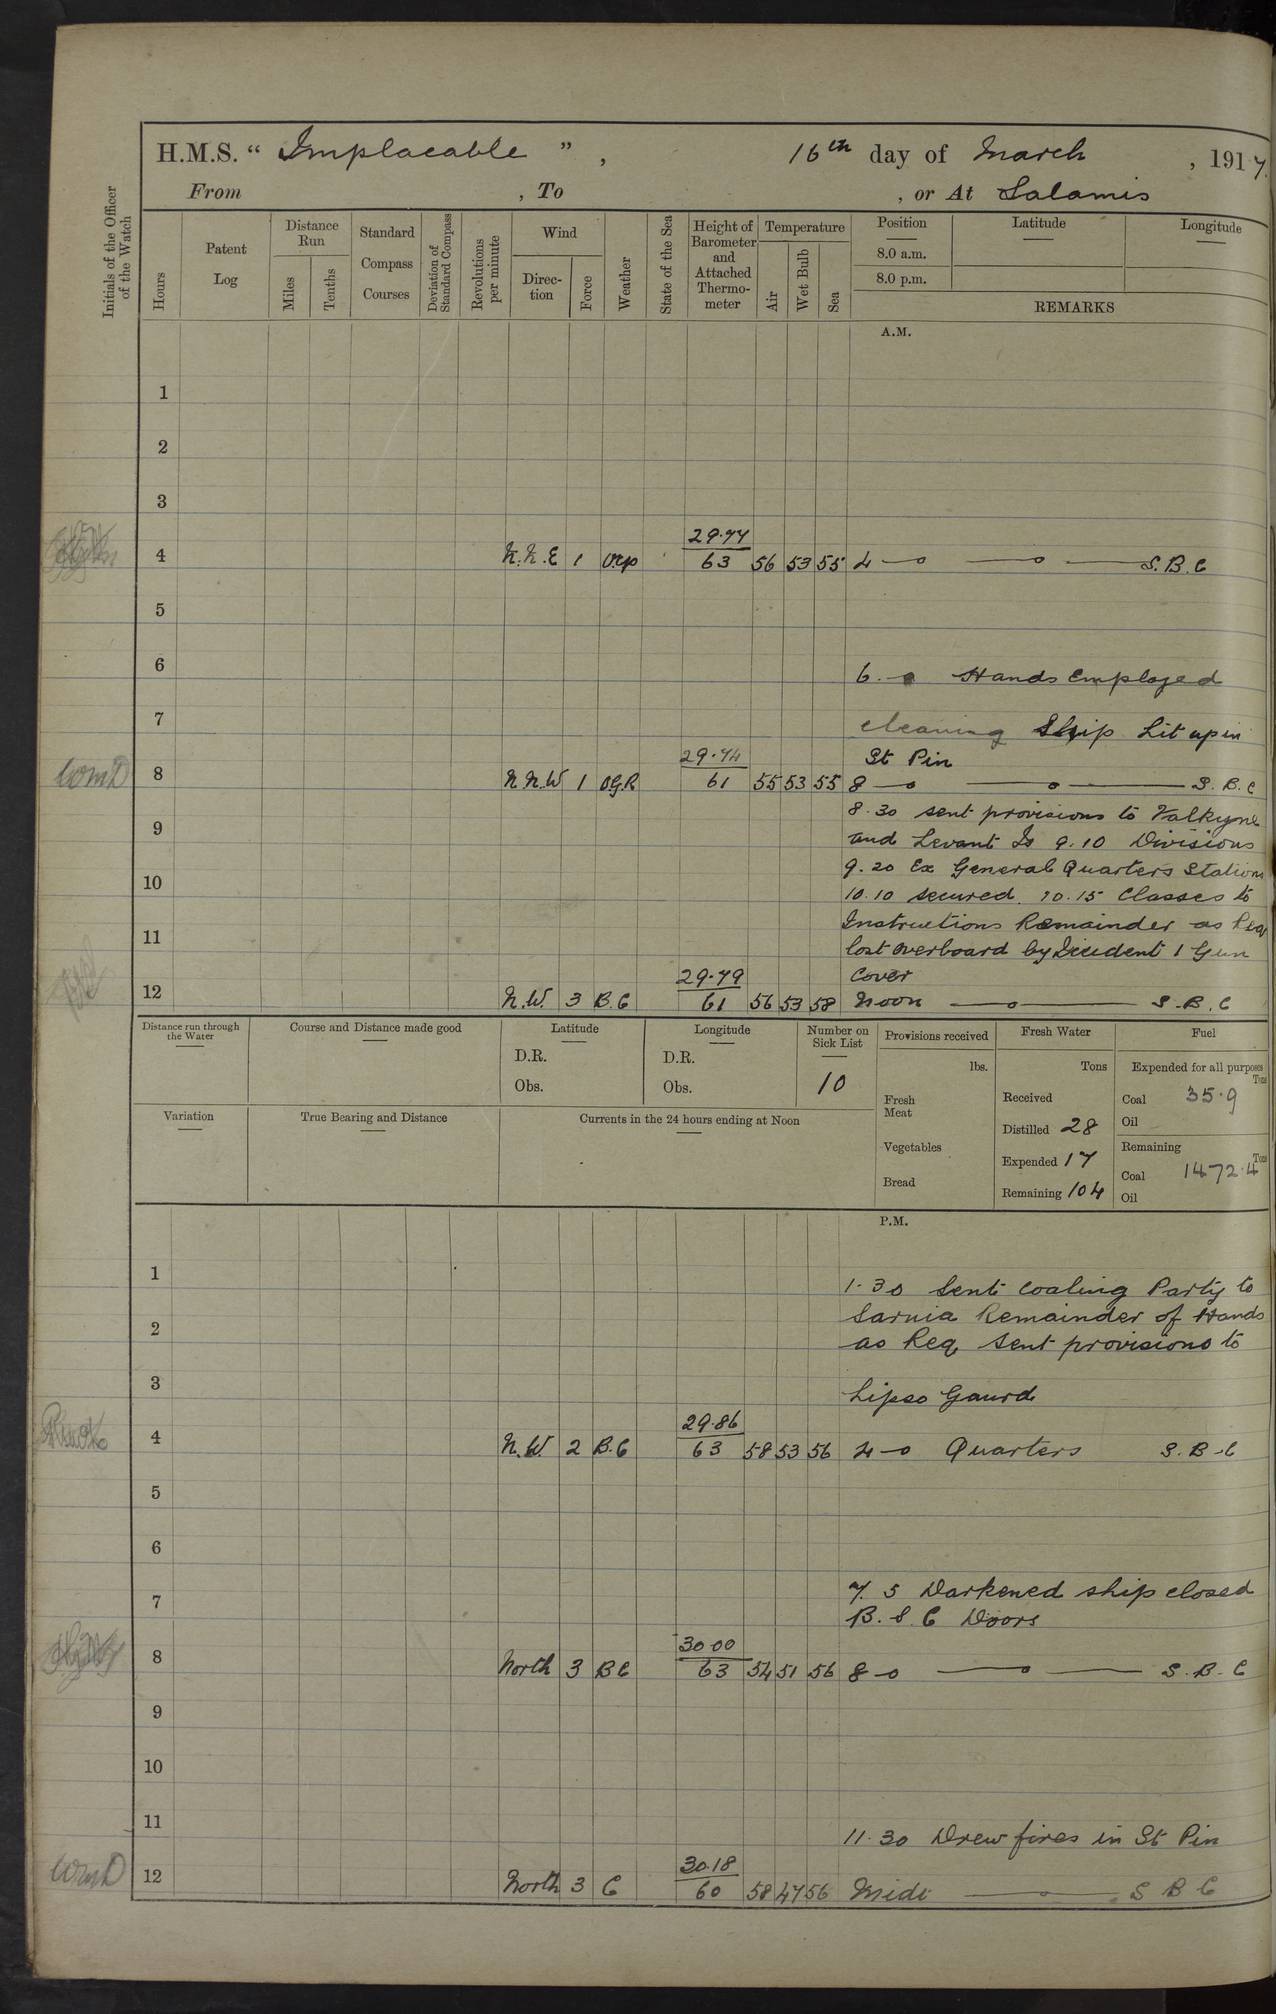 H.M.S. “ Implacable ” , 16th day of March , 1917.
From , To , or At Salamis
Initials of the Officer of the Watch
Hours
Patent Log
Distance Run
Miles
Tenths
Standard Compass Courses
Deviation of Standard Compass
Revolutions per minute
Wind
Direc-tion
Force
Weather
State of the Sea
Height of Barometer and Attached Thermo-meter
Temperature
Air
Wet Bulb
Sea
Position Latitude Longitude
8.0 a.m.
8.0 p.m.
REMARKS
A.M.
1
2
3
29.77
4 N.N.E 1 Orp 63 56 53 55 4—o —o— S.B.C
5
6 6.—o Hands Employed
7 cleaning Ship Lit up in
29.74 St Pin
Wm D 8 N.N.W 1 OGR 61 55 53 55 8—o —o— S.B.C
8.30 sent provisions to Valkyrie
9 and Levant Is 9.10 Divisions
9.20 Ex General Quarters Stations
10 10.10 secured. 10.15 Classes to
Instructions Remainder as Req
11 lost overboard by Iccident 1 Gun
29.79 Cover
12 N.W. 3 B.C 61 56 53 58 Noon —o— S.B.C
Distance run through the Water
Course and Distance made good
Latitude
D.R.
Obs.
Longitude
D.R.
Obs.
Number on Sick List
10
Provisions received
lbs.
Fresh Meat
Vegetables
Bread
Fresh Water
Tons
Received
Distilled 28
Expended 17
Remaining 104
Fuel
Expended for all purposes
Tons
Coal 35.9
Oil
Remaining
Tons
Coal 1472.4
Oil
Variation
True Bearing and Distance
Currents in the 24 hours ending at Noon
P.M.
1 1.30 Sent Coaling Party to
2 Sarnia Remainder of Hands
as Req Sent provisions to
3 Lipso Gaurd
29.86
4 N.W. 2 B.C 63 58 53 56 4—o Quarters S.B.C
5
6
7 7.5 Darkened ship closed
B.S.C Doors
30.00
8 North 3 BC 63 54 51 56 8—o —o— S.B.C
9
10
11 11.30 Drew fires in St Pin
30.18
Wm D 12 North 3 C 60 58 47 56 Midt —o— S B C